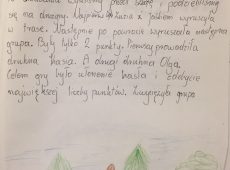 przed szkołą i podzieliliśmy
się na drużyny. Najpierw Zuzia z Jaśkiem wyruszyła
w trasę. Następnie po pewnym wyruszyła następna
grupa. Były tylko 2 punkty. Pierwszy prowadziła
druhna Kasia. A drugi druhna Olga.
Celem gry było utworzenie hasła i zdobycie
największej liczby punktów. Zwyciężyła grupa